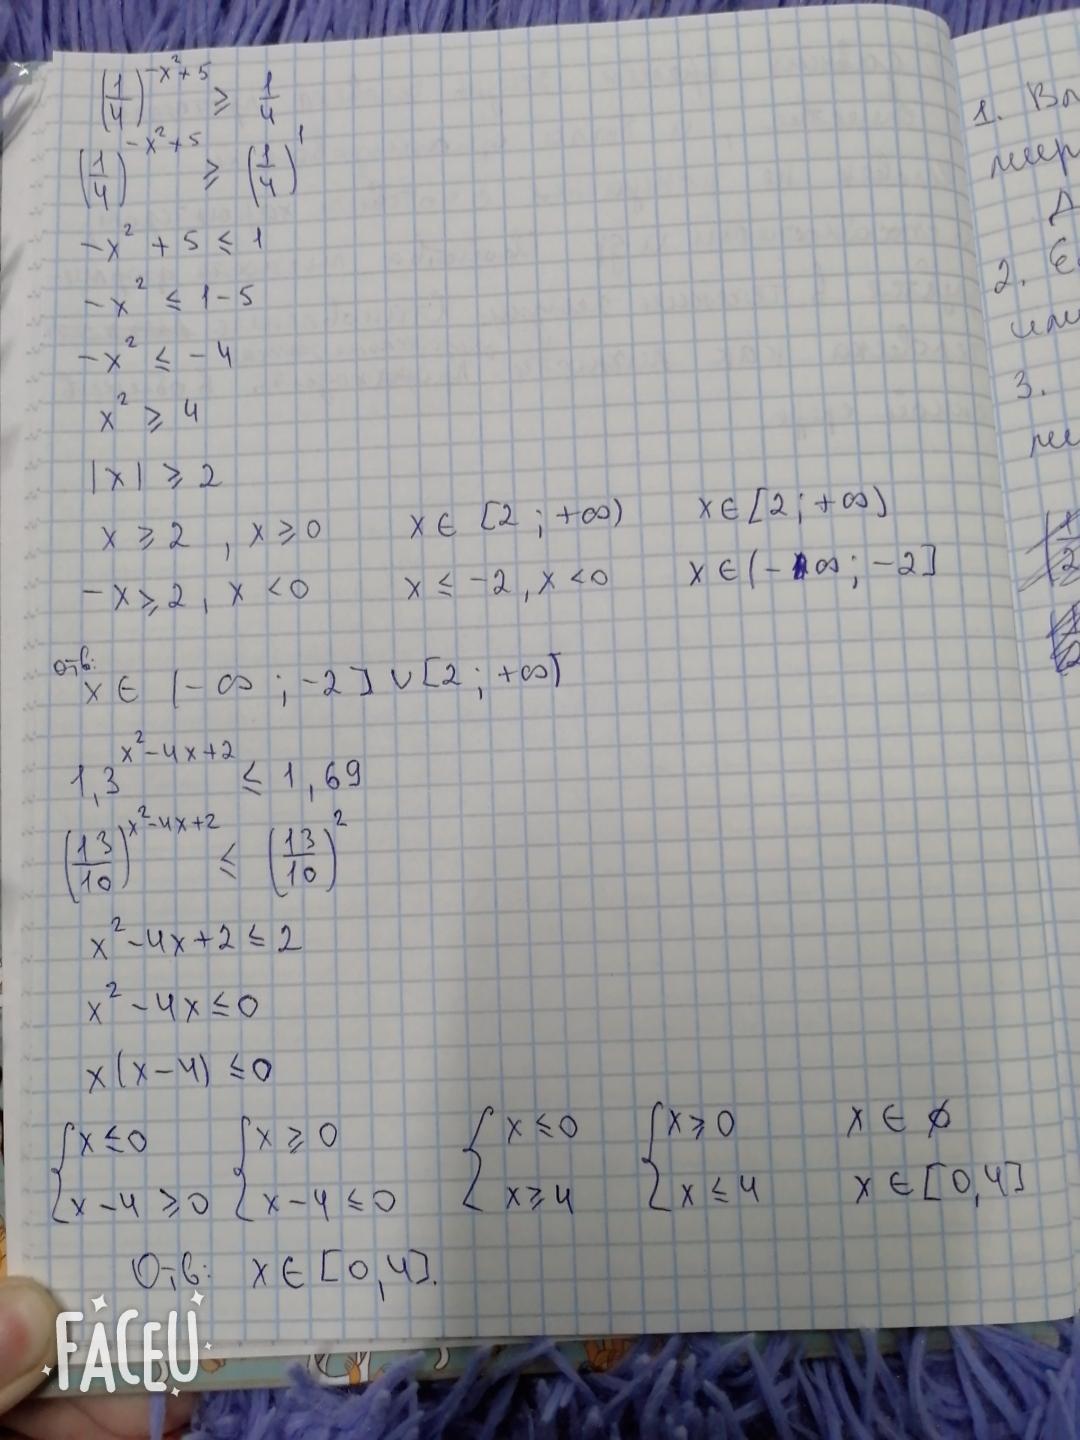 (1/4)^(-x²+5) ≥ 1/4
(1/4)^(-x²+5) ≥ (1/4)^1
-x² + 5 ≤ 1
-x² ≤ 1-5
-x² ≤ -4
x² ≥ 4
|x| ≥ 2
x ≥ 2 , x ≥ 0 x ∈ [2 ; +∞) x ∈ [2 ; +∞)
-x ≥ 2 , x < 0 x ≤ -2 , x < 0 x ∈ (-∞ ; -2]
Отв:
x ∈ (-∞ ; -2] ∪ [2 ; +∞)
1,3^(x²-4x+2) ≤ 1,69
(13/10)^(x²-4x+2) ≤ (13/10)^2
x²-4x+2 ≤ 2
x²-4x ≤ 0
x(x-4) ≤ 0
{x ≤ 0 {x ≥ 0 {x ≤ 0 {x ≥ 0 x ∈ ∅
{x-4 ≥ 0 {x-4 ≤ 0 {x ≥ 4 {x ≤ 4 x ∈ [0,4]
Отв: x ∈ [0,4].
1.
2.
3.
FACEU